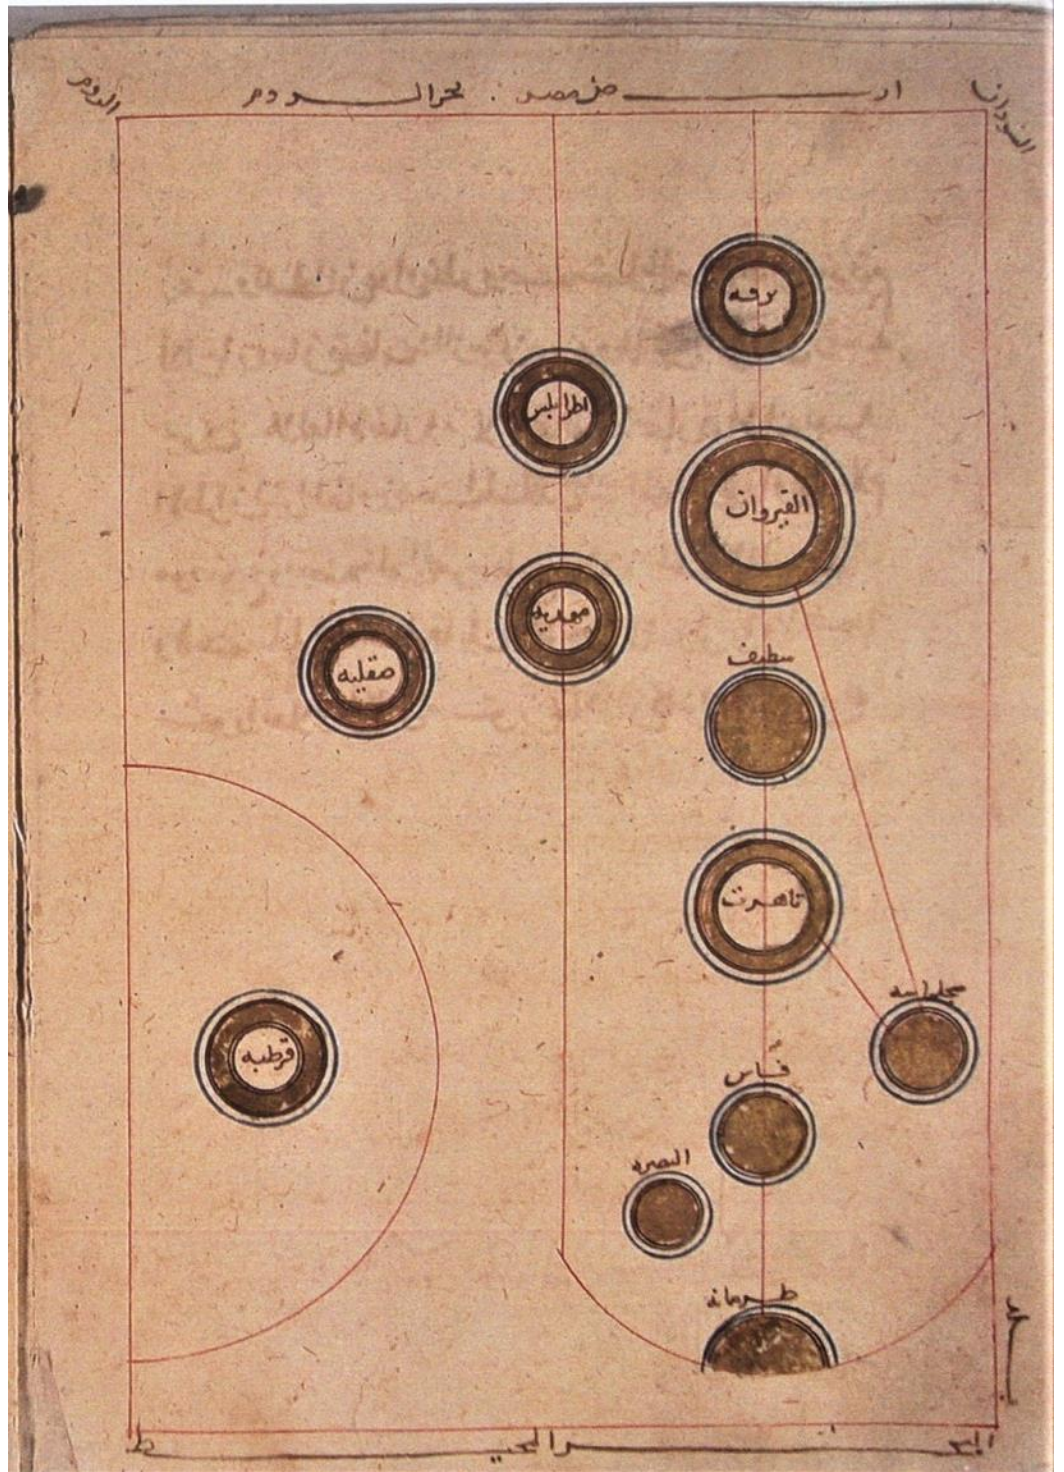 السودان
ارض مصر
بحر الروم
الروم
برقه
اطرابلس
القيروان
مهديه
سطيف
صقليه
تاهرت
سجلماسه
قرطبه
فاس
البصره
بلد
البحر المحيط